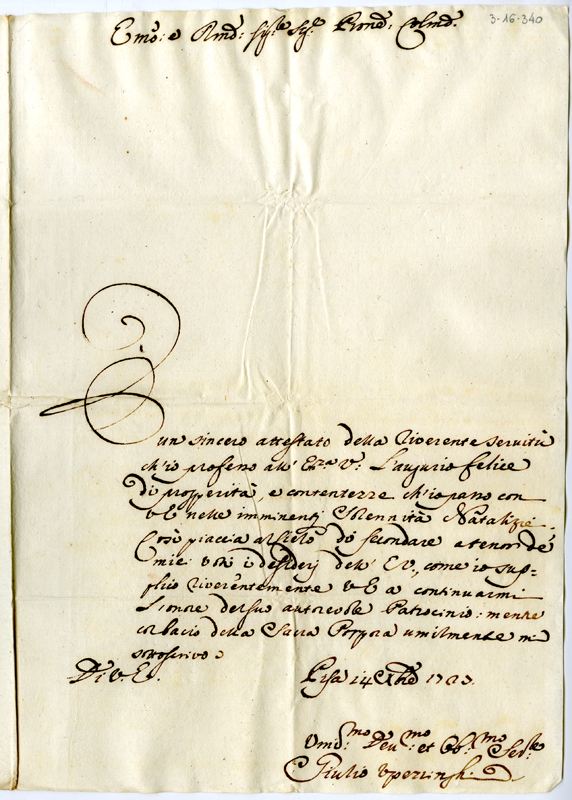 3-16-340
Emo: e Rmo: Sig.re Sig.r Prone: Colmo:
È un sincero attestato della riverente servitù
ch'io professo all' Em.za V: l'augurio felice
di prosperità, e contentezze ch'io passo con
V E nelle imminenti Solennità Natalizie.
Così piaccia al Cielo di secondare a tenor de'
miei voti i desiderij dell' E V., come io sup=
plico riverentemente V E a continuarmi
l'onore del suo autorevole Patrocinio: mentre
col bacio della Sacra Porpora umilmente mi
sottoscrivo
Di V. E. Pisa 14 Xbre 1723.
Umo: Devmo: et Obmo Serre
Giulio